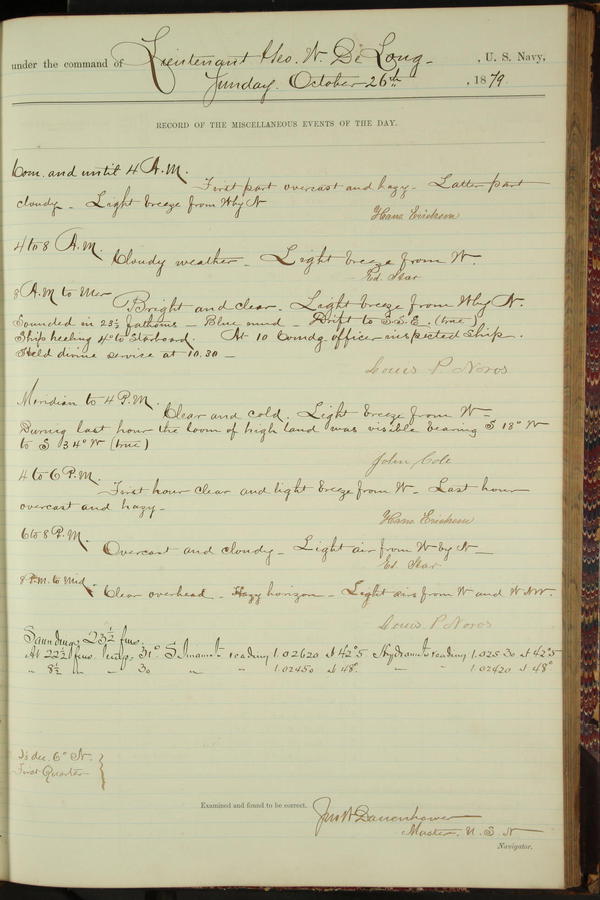 under the command of Lieutenant Geo. W. De Long, U. S. Navy,
Sunday. October 26th, 1879.
RECORD OF THE MISCELLANEOUS EVENTS OF THE DAY.
Com. and until 4 A.M.
First part overcast and hazy - Latter part
cloudy - Light breeze from W by N
Hans Erichsen
4 to 8 A.M.
Cloudy weather - Light breeze from W.
Ed. Star
8 A.M to Mer
Bright and clear. Light breeze from W by N.
Sounded in 23½ fathoms - Blue mud - Drift to S.S.E. (true)
Ship heeling 4° to starboard. At 10 Comdg. officer inspected ship.
Held divine service at 10.30 -
Louis P. Noros
Meridian to 4 P.M.
Clear and cold. Light breeze from W -
During last hour the loom of high land was visible bearing S 18° W
to S 34° W (true)
John Cole
4 to 6 P.M.
First hour clear and light breeze from W - Last hour
overcast and hazy -
Hans Erichsen
6 to 8 P.M.
Overcast and cloudy - Light air from W by N -
Ed. Star
8 P.M. to Mid
Clear overhead - Hazy horizon - Light airs from W and WNW.
Louis P. Noros
Sounding 23½ fms.
At 22½ fms. temp. 31° reading 1.02620 at 42°5 reading 1.02530 at 42°5
" 8½ " " 30 " " 1.02450 at 48° " " 1.02420 at 48°
)'s dec. 6° N.
First Quarter
Examined and found to be correct.
Jno W Danenhower
Master, U. S. N
Navigator.